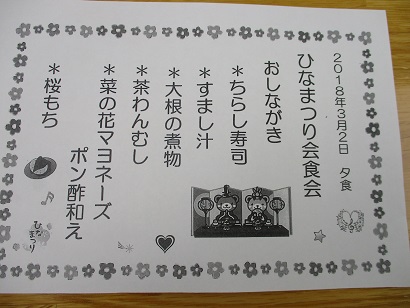 2018年3月2日 夕食
ひなまつり会食会
おしながき
＊ちらし寿司
＊すまし汁
＊大根の煮物
＊茶わんむし
＊菜の花マヨネーズ
ポン酢和え
＊桜もち
ひな
まつり